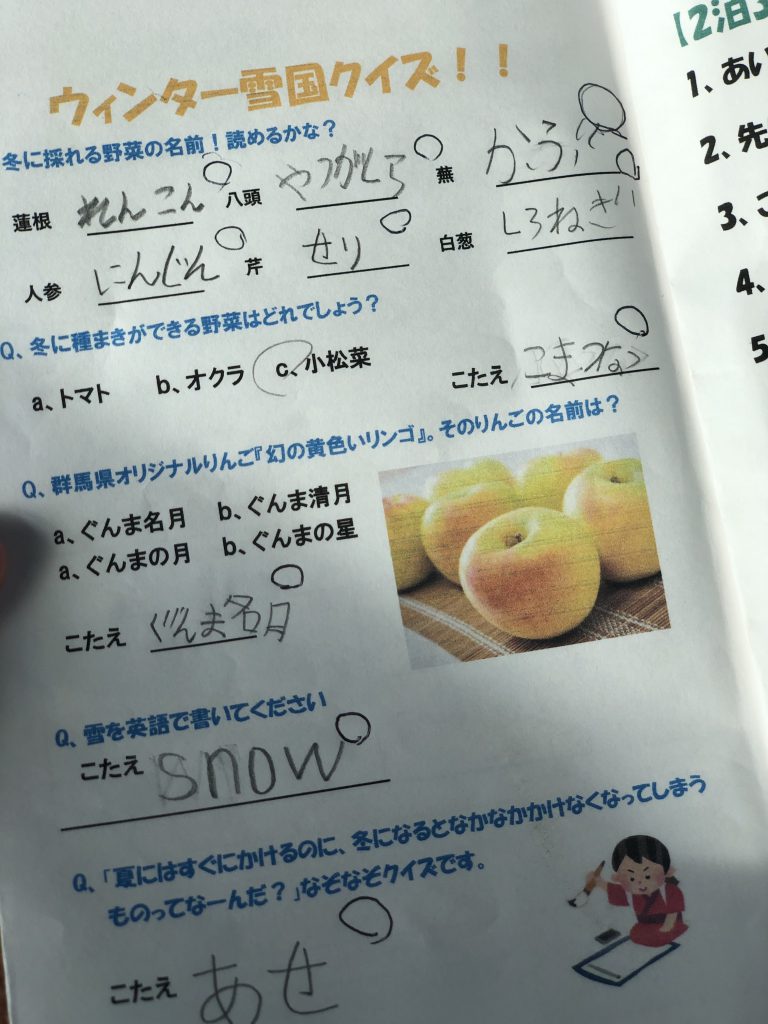 ウィンター雪国クイズ！！
冬に採れる野菜の名前！読めるかな？
蓮根 れんこん 八頭 やつがしら 蕪 かぶ
人参 にんじん 芹 せり 白葱 しろねぎ
Q、冬に種まきができる野菜はどれでしょう？
a、トマト b、オクラ c、小松菜 こたえ こまつな
Q、群馬県オリジナルりんご『幻の黄色いリンゴ』。そのりんごの名前は？
a、ぐんま名月 b、ぐんま清月
a、ぐんまの月 b、ぐんまの星
こたえ ぐんま名月
Q、雪を英語で書いてください
こたえ snow
Q、「夏にはすぐにかけるのに、冬になるとなかなかかけなくなってしまう
ものってなーんだ？」なぞなぞクイズです。
こたえ あせ
【2泊3
1、あい
2、先
3、こ
4、
5